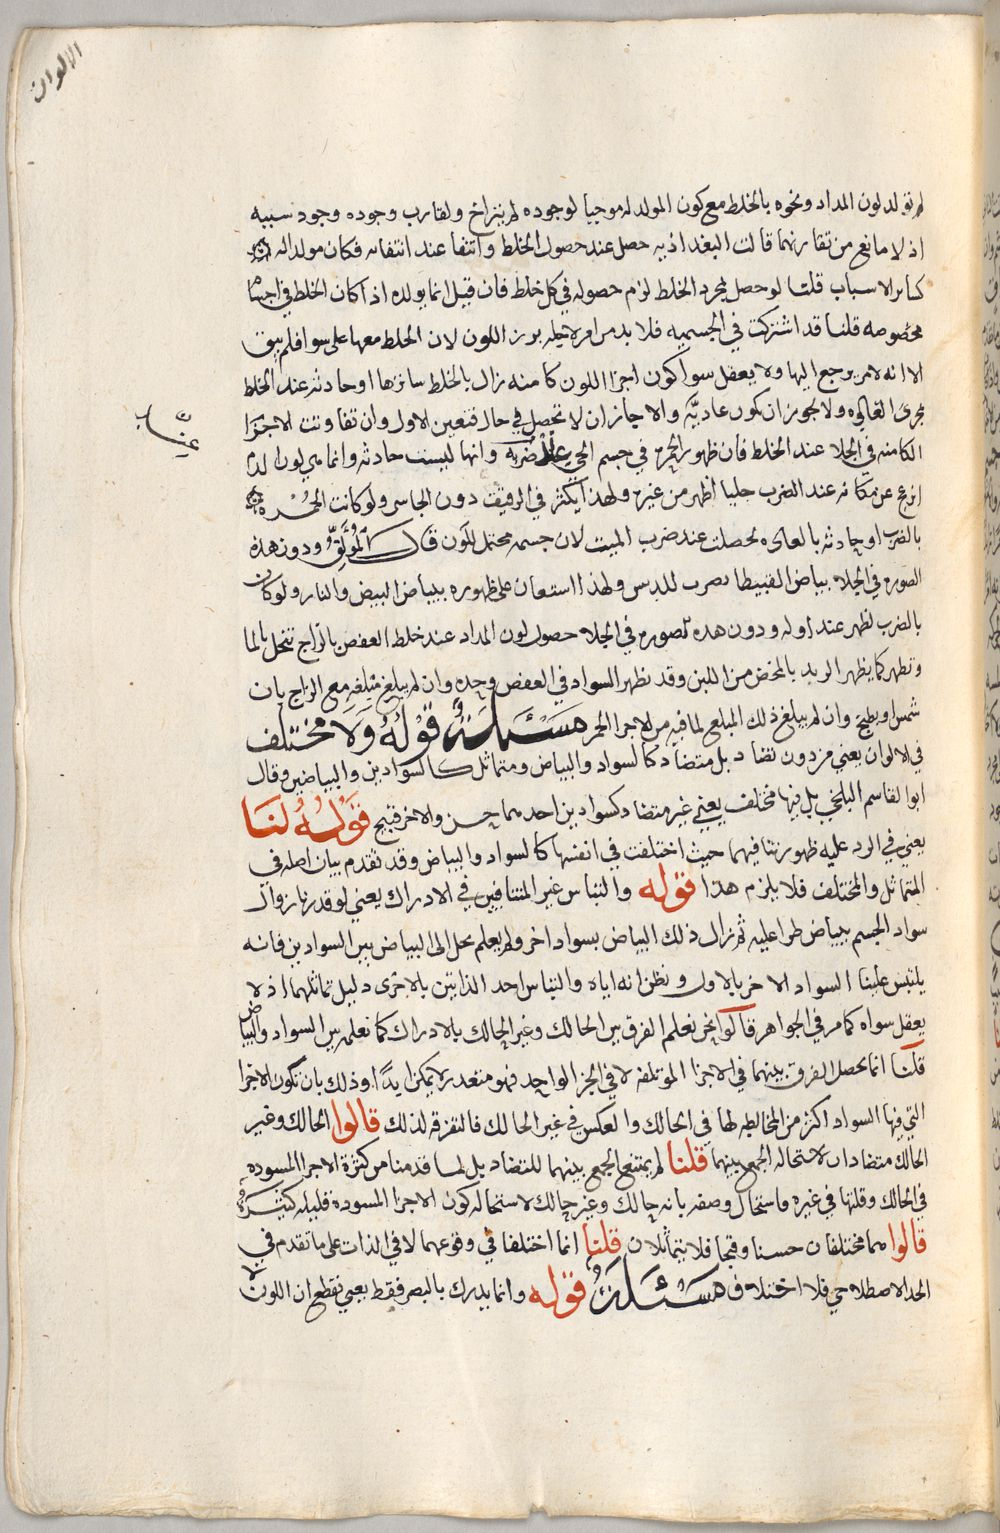 الالوان
لم تولد لون المداد ونحوه بالخلط مع كون المولد له موجبا لوجوده لم يتراخ ولقارب وجوده وجود سببه
اذ لا مانع من تقارنهما قالت البغداذيه حصل عند حصول الخلط وانتفا عند انتفائه فكان مولدا له
كسائر الاسباب قلنا لو حصل بمجرد الخلط لزم حصوله في كل خلط فان قيل انما يولده اذا كان الخلط في اجسام
مخصوصه قلنا قد اشتركت في الجسميه فلا بد من امر لاجله برز اللون لان الخلط معها على سوا فلم يبق
الا انه لامر يرجع اليها ولا يعقل سوا كون اجزا اللون كامنه زال بالخلط ساترها او حادثه عند الخلط
بجرى العاده ولا يجوز ان يكون عاديه والا جاز ان لا تحصل في حال فتعين الاول وان تفاوتت الاجزا
الكامنه في الجلا عند الخلط فان ظهور الحمره في جسم الحي عند ضربه وانها ليست حادثه وانما هي لون الدم
انزعج عن مكانه عند الضرب جليا اظهر من غيره ولهذا يكثر في الرقيق دون الجاسي ولو كانت الحمره
بالضرب او حادثه بالعاده لحصلت عند ضرب الميت لان جسمه محتمل للون قال المؤلف ودون هذه
الصوره في الجلا بياض القبيطا بضرب للدبس ولهذا استعان على ظهوره ببياض البيض والنار ولو كان
بالضرب لظهر عند اوله ودون هذه الصوره في الجلا حصول لون المداد عند خلط العفص بالزاج تنحل بالما
وتظهر كما يظهر الزبد بالمخض من اللبن وقد تظهر السواد في العفص وحده وان لم يبلغ مبلغه مع الزاج بان
شمس او يطبخ وان لم يبلغ ذلك المبلغ لما فيه من الاجزا الحمر مسئلة قوله ولا مختلف
في الالوان يعني من دون تضاد بل متضاد كالسواد والبياض ومتماثل كالسوادين والبياضين وقال
ابوا القاسم البلخي بل فيها مختلف يعني غير متضاد كسوادين احدهما حسن والاخر قبيح قوله لنا
يعني في الرد عليه ظهور تنافيهما حيث اختلفت في انفسها كالسواد والبياض وقد تقدم بيان اصله في
المتماثل والمختلف فلا يلزم هذا قوله والتباس غير المتنافيين في الادراك يعني لو قدرنا زوال
سواد الجسم ببياض طرا عليه ثم زال ذلك البياض بسواد اخر ولم يعلم بحال البياض بين السوادين فانه
يلتبس علينا السواد الاخر بالاول ونظن انه اياه والتباس احد الذاتين بالاخرى دليل تماثلهما اذ لا
يعقل سواه كما مر في الجواهر قالوا نحن نعلم الفرق بين الحالك وغير الحالك بالادراك كما نعلم بين السواد والبياض
قلنا انما يحصل الفرق بينهما في الاجزا المؤتلفه لا في الجز الواحد فهو متعذر لا يمكن ابدا وذلك بان تكون الاجزا
التي فيها السواد اكثر من المخالطه لها في الحالك والعكس في غير الحالك فالتفرقه لذلك قالوا الحالك وغير
الحالك متضادان لاستحاله الجمع بينهما قلنا لم يمتنع الجمع بينهما للتضاد بل لما قدمنا من كثرة الاجزا المسوده
في الحالك وقلتها في غيره فاستحال وصفه بانه حالك وغير حالك لاستحاله كون الاجزا المسوده قليله كثيره
قالوا هما مختلفان حسنا وقبحا فلا يتماثلان قلنا انما اختلفا في وقوعهما لا في الذات على ما تقدم في
الحد الاصطلاحي فلا اختلاف مسئلة قوله وانما يدرك بالبصر فقط يعني نقطع ان اللون لا